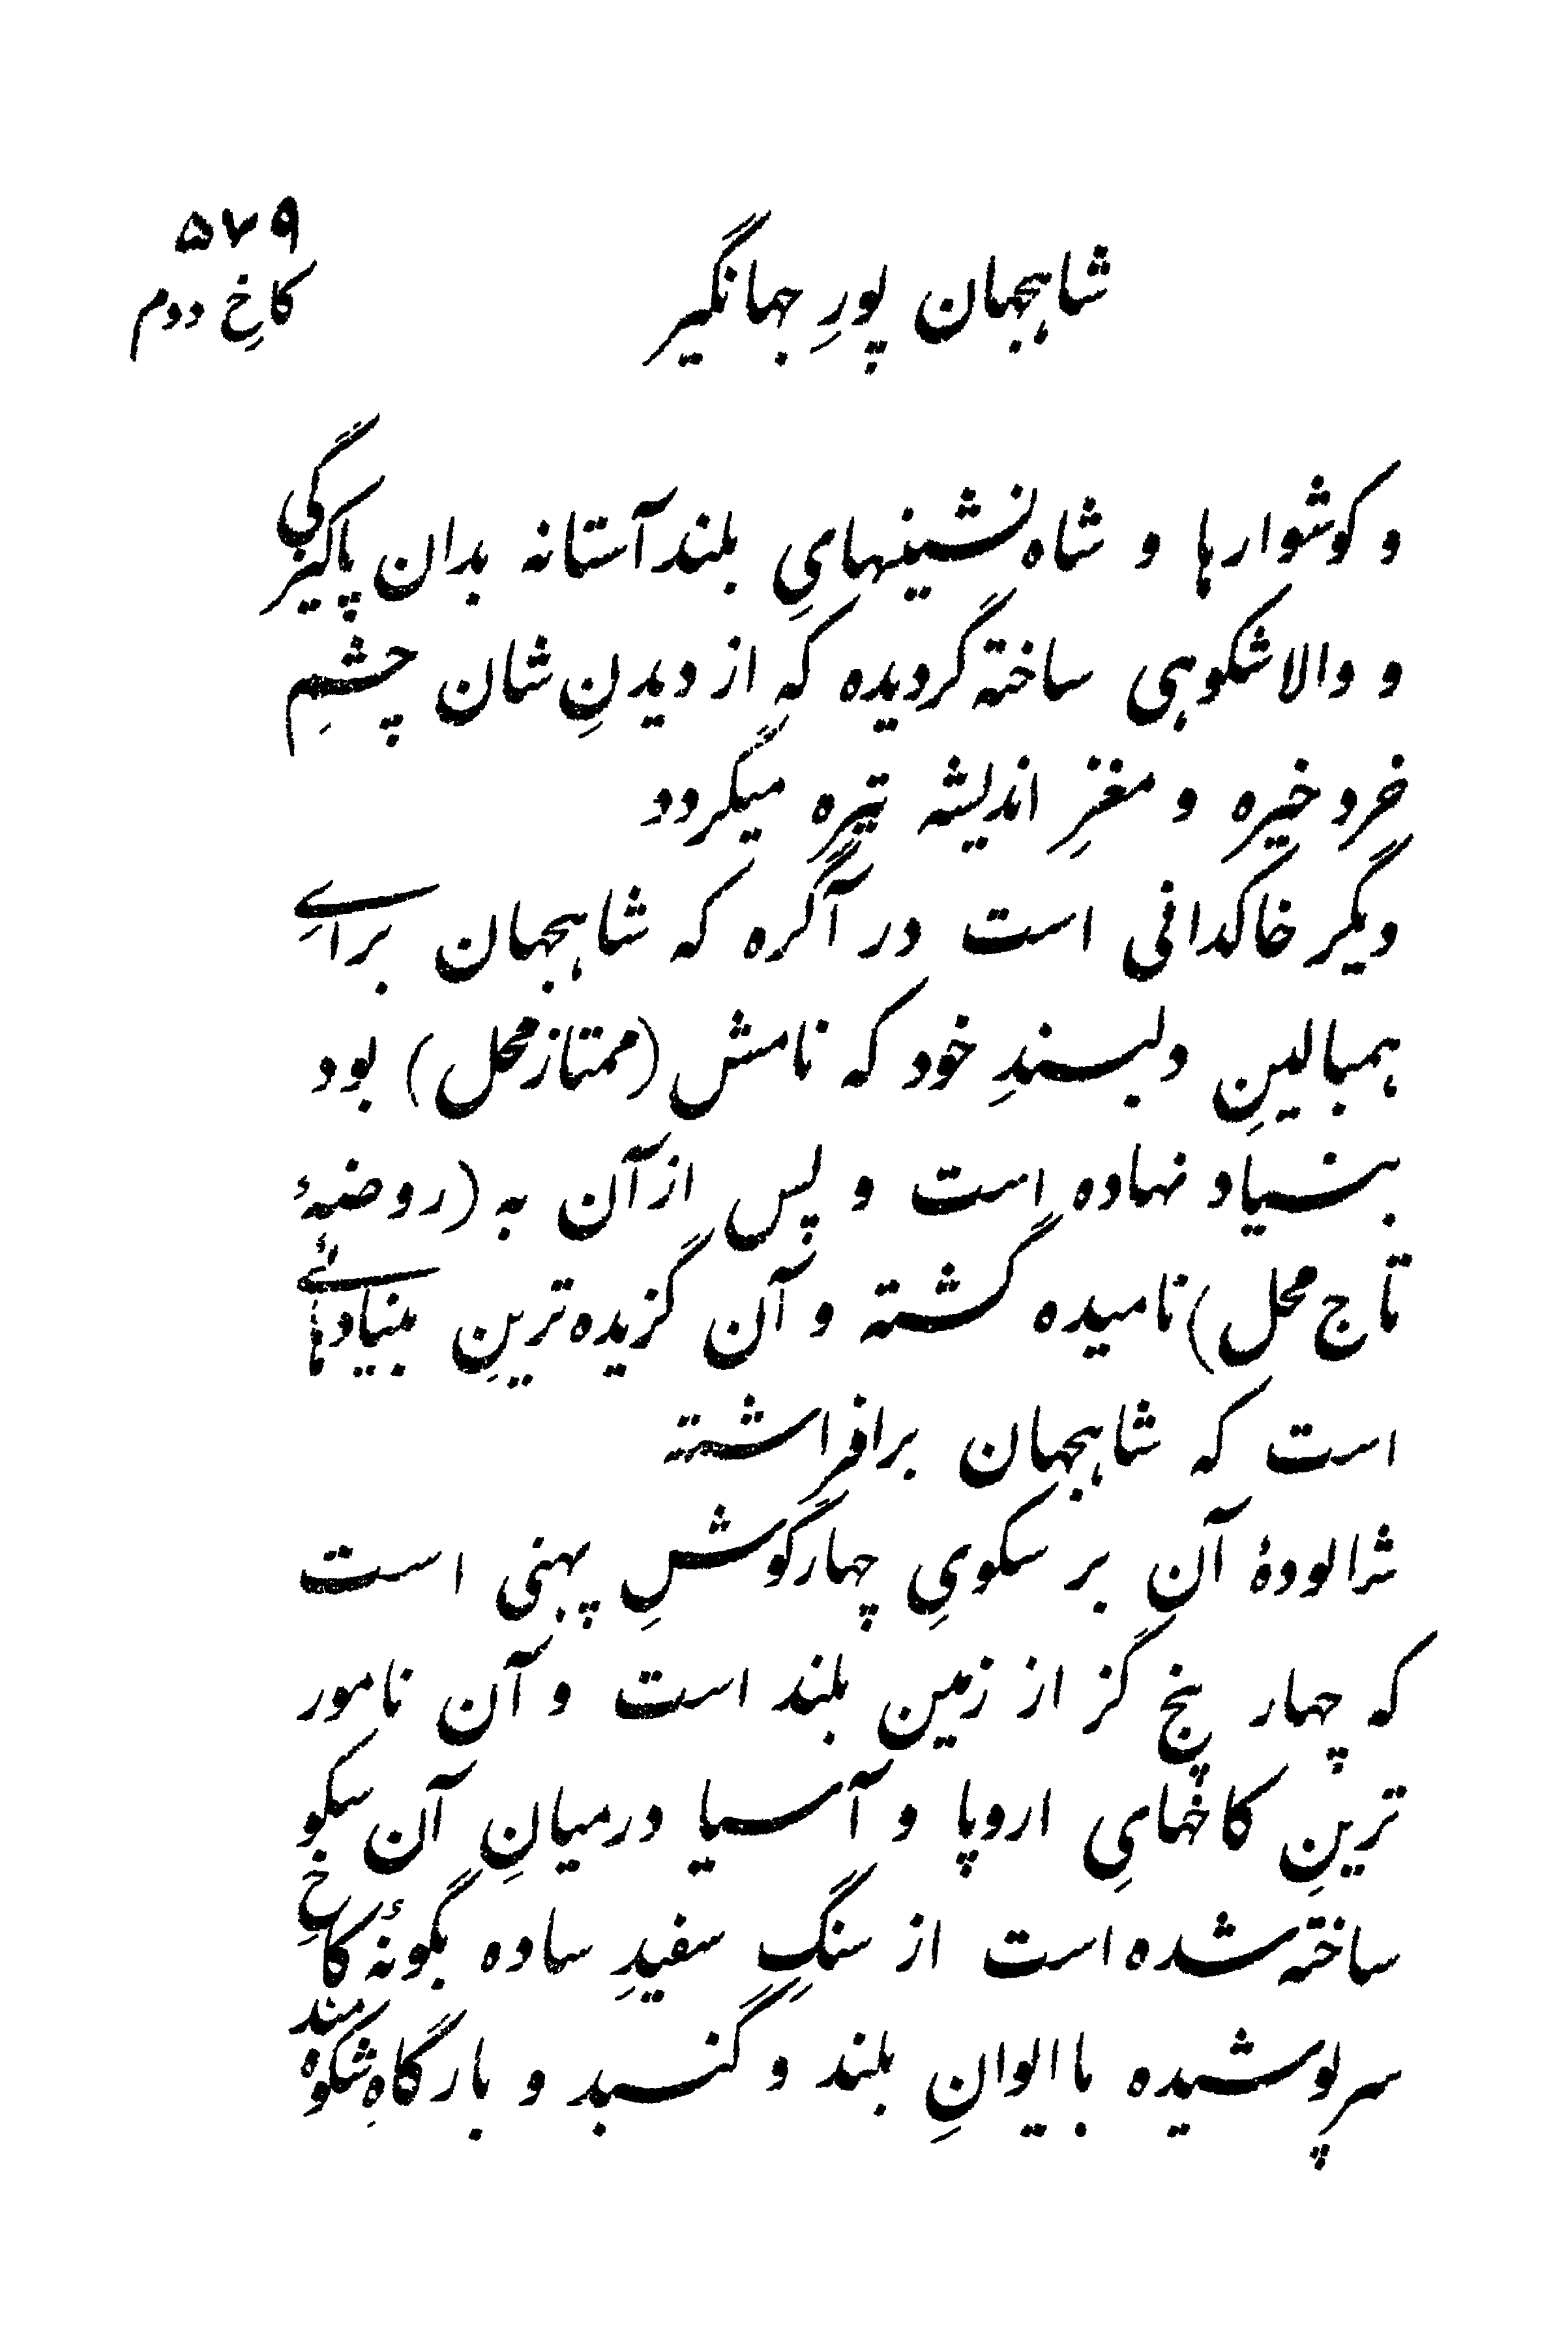 ۵۷۹
شاهجهان پورِ جهانگیر
کاخِ دوم
و کوشوارها و شاه نشینهایِ بلند آستانه بدان پاکیزگی
و والاشکوهی ساخته گردیده که از دیدنِ شان چشمِ
خرد خیره و مغزِ اندیشه تیره میگردد
دیگر خاکدانی است در آگره که شاهجهان برایِ
همبالینِ دلبسندِ خود که نامش (ممتاز محل) بود
بنیاد نهاده است و پس از آن به (روضهٔ
تاج محل) نامیده گشته و آن گزیده ترینِ بنیادهائے
است که شاهجهان برافراشته
شالودهٔ آن بر سکویِ چهارگوشِ پهنی است
که چهار پنج گز از زمین بلند است و آن نامور
ترینِ کاخهایِ اروپا و آسیا درمیانِ آن سکو
ساخته شده است از سنگِ سفیدِ ساده بگونهٔ کاخِ
سرپوشیده با ایوانِ بلند و گنبد و بارگاهِ شکوه مند